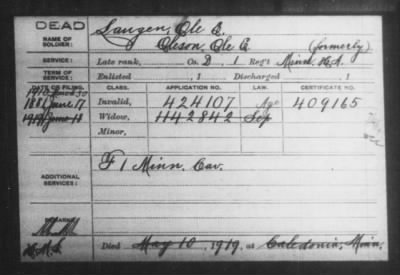 DEAD
NAME OF SOLDIER:
Langen, Ole E.
Oleson, Ole E. (formerly)
SERVICE:
Late rank, Co. D, 1 Reg't Minn. H.A.
TERM OF SERVICE:
Enlisted , 1 Discharged , 1
DATE OF FILING. CLASS. APPLICATION NO. LAW. CERTIFICATE NO.
1881 June 17 Invalid, 424107 Age 409165
1919 June 13 Widow, 1142842 Sep
Minor,
ADDITIONAL SERVICES:
F 1 Minn. Cav.
REMARKS:
Died May 10, 1919, at Caledonia, Minn.